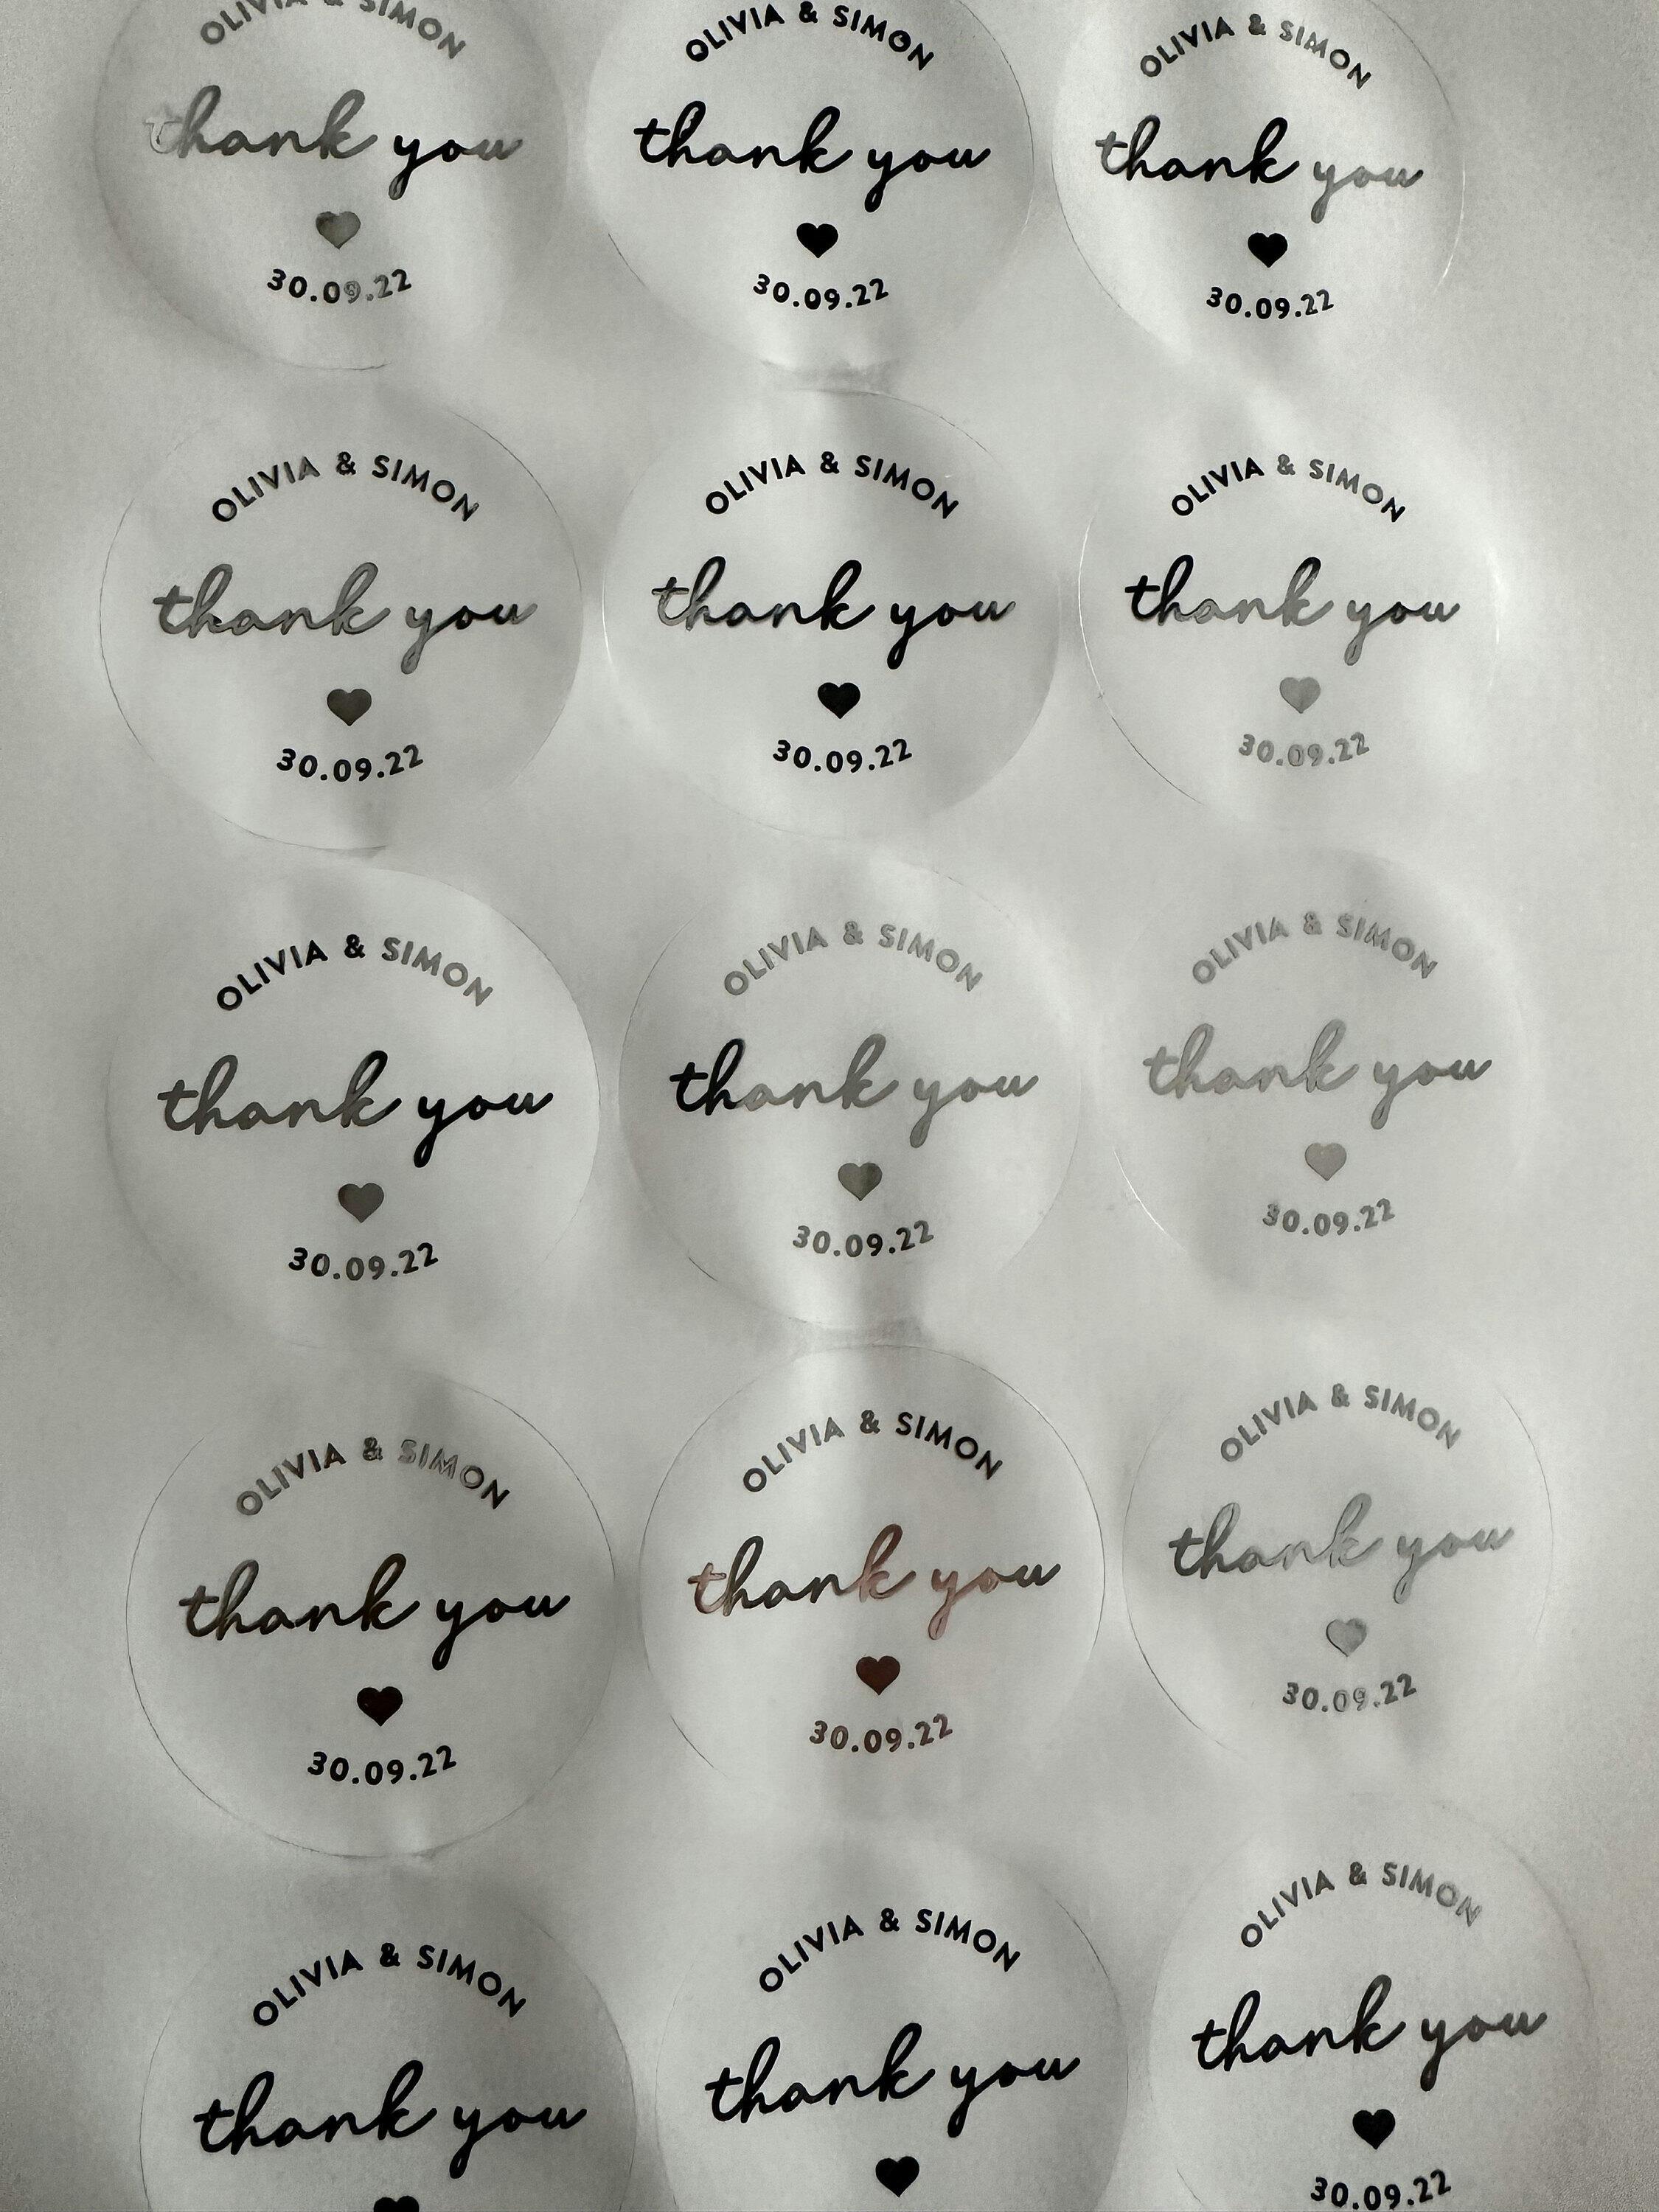 OLIVIA & SIMON
thank you
30.09.22
OLIVIA & SIMON
thank you
30.09.22
OLIVIA & SIMON
thank you
30.09.22
OLIVIA & SIMON
thank you
30.09.22
OLIVIA & SIMON
thank you
30.09.22
OLIVIA & SIMON
thank you
30.09.22
OLIVIA & SIMON
thank you
30.09.22
OLIVIA & SIMON
thank you
30.09.22
OLIVIA & SIMON
thank you
30.09.22
OLIVIA & SIMON
thank you
30.09.22
OLIVIA & SIMON
thank you
30.09.22
OLIVIA & SIMON
thank you
30.09.22
OLIVIA & SIMON
thank you
OLIVIA & SIMON
thank you
OLIVIA & SIMON
thank you
30.09.22